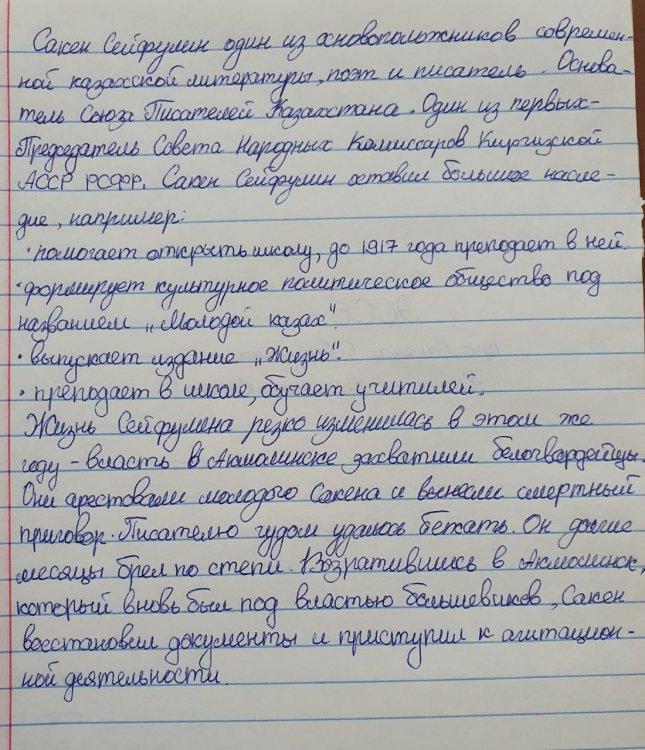 Сакен Сейфулин один из основоположников современ-
ной казахской литературы, поэт и писатель. Основа-
тель Союза Писателей Казахстана. Один из первых-
Председатель Совета Народных Комиссаров Киргизской
АССР РСФР. Сакен Сейфулин оставил большое насле-
дие, например:
· помогает открыть школу, до 1917 года преподает в ней.
· формирует культурное политическое общество под
названием „Молодой казах".
· выпускает издание „Жизнь".
· преподает в школе, обучает учитилей.
Жизнь Сейфулина резко изменилась в этом же
году - власть в Акмолинске захватили белогвардейцы.
Они арестовали молодого Сакена и вынесли смертный
приговор. Писателю чудом удалось бежать. Он долгие
месяцы брел по степи. Возратившись в Акмолинск,
который вновь был под властью большевиков, Сакен
восстановил документы и приступил к агитацион-
ной деятельности.